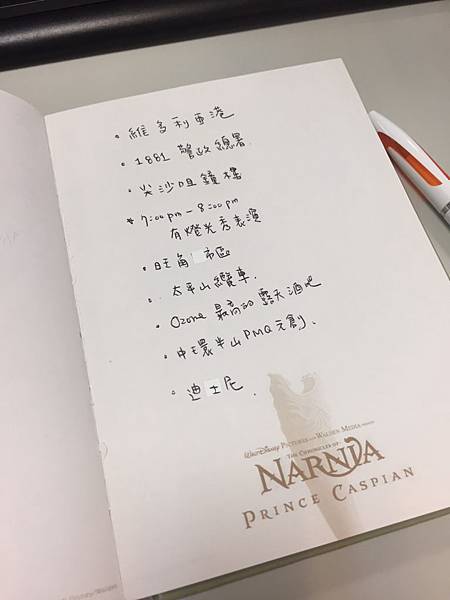 • 維多利亞港
• 1881 警政總署
• 尖沙咀鐘樓
* 7:00 pm – 8:00 pm
有燈光秀表演
• 旺角 市區
• 太平山纜車.
• Ozone 最高的露天酒吧
• 中環半山PMQ元創.
• 迪士尼.
WALT DISNEY PICTURES AND WALDEN MEDIA PRESENT
THE CHRONICLES OF
NARNIA
PRINCE CASPIAN